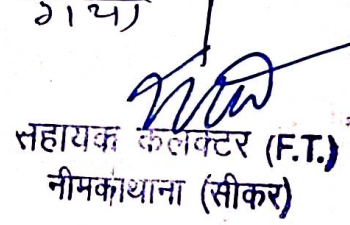 गया
सहायक कलक्टर (F.T.)
नीमकाथाना (सीकर)